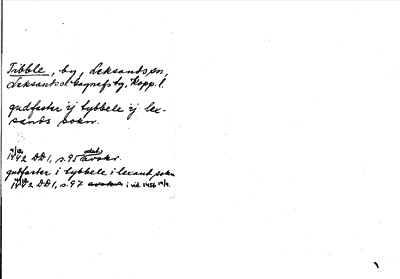 Tibble, by, Leksands sn,
Leksands o Gagnefs tg, Kopp. l.
gudfaster ij tybbele ij lex-
sands sokn.
1442 DD 1, s. 95 avskr.
gudfaster i tybbele i lexand sokn
1442 DD 1, s. 97 avskr. i vid. 1456